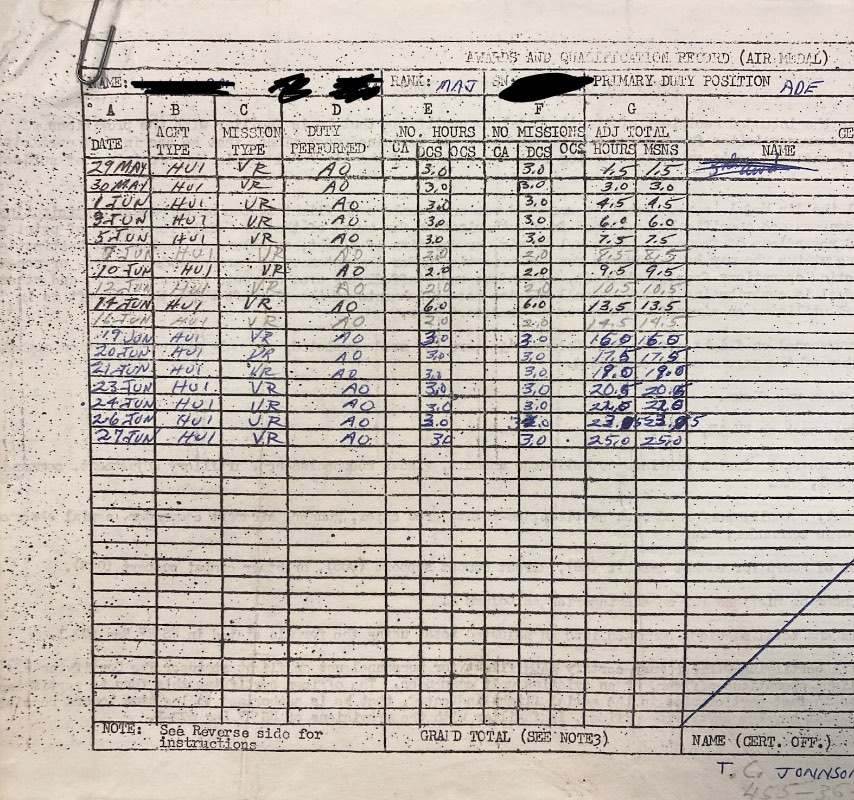 AWARDS AND QUALIFICATION RECORD (AIR MEDAL)
NAME: RANK: MAJ SN: PRIMARY DUTY POSITION ADE
A B C D E F G
DATE ACFT TYPE MISSION TYPE DUTY PERFORMED NO. HOURS NO MISSIONS ADJ TOTAL GE
CA DCS OCS CA DCS OCS HOURS MSNS NAME
29 MAY HUI VR AO 3.0 3.0 1.5 1.5
30 MAY HUI VR AO 3.0 3.0 3.0 3.0
1 JUN HUI VR AO 3.0 3.0 4.5 4.5
3 JUN HUI VR AO 3.0 3.0 6.0 6.0
5 JUN HUI VR AO 3.0 3.0 7.5 7.5
7 JUN HUI VR AO 2.0 2.0 8.5 8.5
10 JUN HUI VR AO 2.0 2.0 9.5 9.5
12 JUN HUI VR AO 2.0 2.0 10.5 10.5
14 JUN HUI VR AO 6.0 6.0 13.5 13.5
JUN HUI VR AO 2.0 2.0 14.5 14.5
19 JUN HUI VR AO 3.0 3.0 16.0 16.0
20 JUN HUI VR AO 3.0 3.0 17.5 17.5
21 JUN HUI VR AO 3.0 3.0 19.0 19.0
23 JUN HUI VR AO 3.0 3.0 20.5 20.5
24 JUN HUI VR AO 3.0 3.0 22.0 22.0
26 JUN HUI VR AO 3.0
27 JUN HUI VR AO 30 3.0 25.0 25.0
NOTE: See Reverse side for
instructions
GRAND TOTAL (SEE NOTE3) NAME (CERT. OFF.)
T. C. JOHNSON